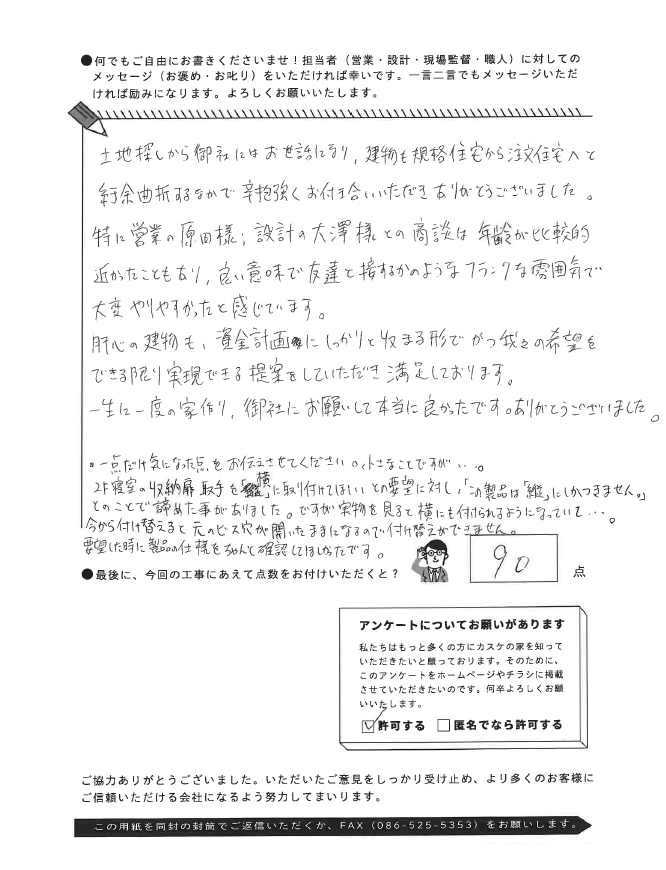 ●何でもご自由にお書きくださいませ！担当者（営業・設計・現場監督・職人）に対しての
メッセージ（お褒め・お叱り）をいただければ幸いです。一言二言でもメッセージいただ
ければ励みになります。よろしくお願いいたします。
土地探しから御社にはお世話になり，建物も規格住宅から注文住宅へと
紆余曲折するなかで辛抱強くお付き合いいただきありがとうございました。
特に営業の原田様；設計の大澤様との商談は年齢が比較的
近かったこともあり，良い意味で友達と接するかのようなフランクな雰囲気で
大変やりやすかったと感じています。
肝心の建物も，資金計画にしっかりと収まる形でかつ我々の希望を
できる限り実現できる提案をしていただき満足しております。
一生に一度の家作り，御社にお願いして本当に良かったです。ありがとうございました。
*一点だけ気になった点をお伝えさせてください。小さなことですが・・・。
2F寝室の収納扉取手を「横」に取り付けてほしいとの要望に対し，「この製品は「縦」にしかつきません。」
とのことで諦めた事がありました。ですが実物を見ると横にも付けられるようになっていて・・・。
今から付け替えると元のビス穴が開いたままになるので付け替えができません。
要望した時に製品の仕様をちゃんと確認してほしかったです。
●最後に、今回の工事にあえて点数をお付けいただくと？
90
点
アンケートについてお願いがあります
私たちはもっと多くの方にカスケの家を知って
いただきたいと願っております。そのために、
このアンケートをホームページやチラシに掲載
させていただきたいのです。何卒よろしくお願
いいたします。
許可する
匿名でなら許可する
ご協力ありがとうございました。いただいたご意見をしっかり受け止め、より多くのお客様に
ご信頼いただける会社になるよう努力してまいります。
この用紙を同封の封筒でご返信いただくか、FAX（086-525-5353）をお願いします。